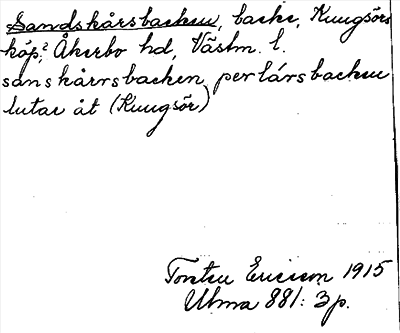 Sandskårsbacken, backe, Kungsörs
köp? Åkerbo hd, Västm. l.
sanskårrsbacken perlársbacken
lutar åt (Kungsör)
Torsten Ericsson 1915
Ulma 881: 3 p.